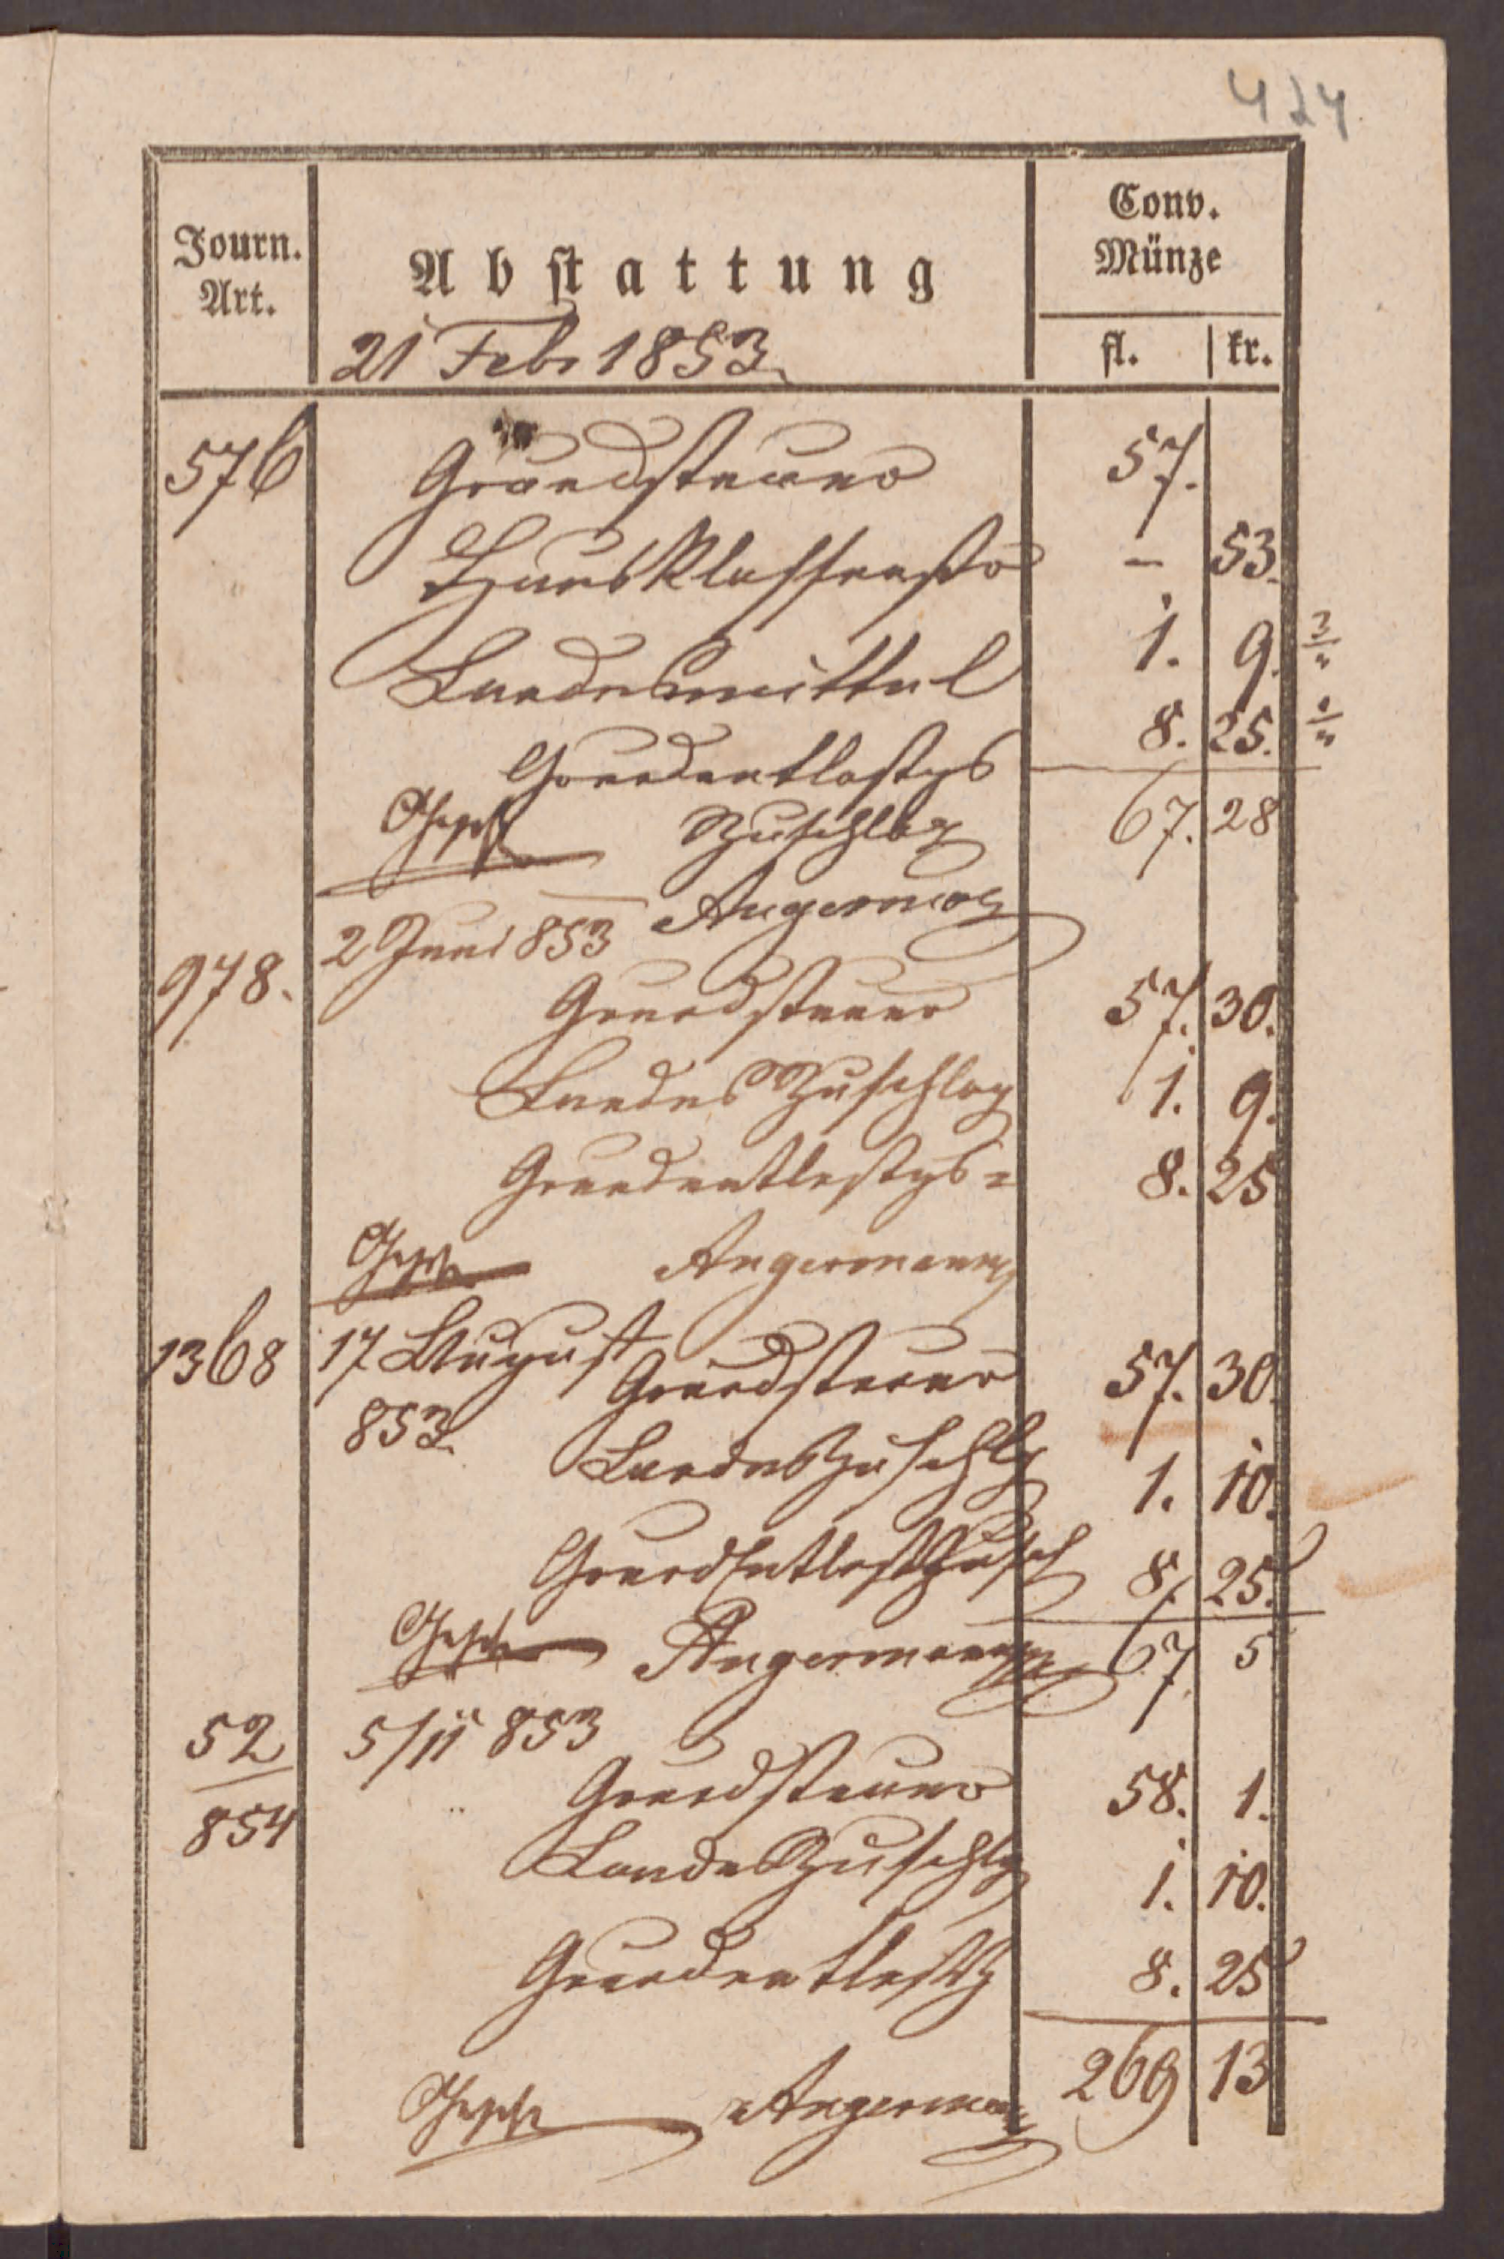 424
Journ. Art.
Abstattung
Conv. Münze
fl. kr.
21 Febr 1853
576 Grundsteuer 57.
Hausklassenstr – 53.
Landesmittel 1. 9. 3/4
Grundentlastgs 8. 25. 2/4
Zuschlag 67. 28
Angermann
2 Juni 853
978. Grundsteuer 57. 30.
Landes Zuschlag 1. 9.
Grundentlastgs= 8. 25
Angermann
1368 17 August Grundsteuer 57. 30.
853. Landeszuschlg 1. 10.
GrundEntlastZusch 8. 25.
Angermann 67 5
52/854 5/11 853
Grundsteuer 58. 1.
LandesZuschlg 1. 10.
Grundentlastg 8. 25
Angermann 269 13